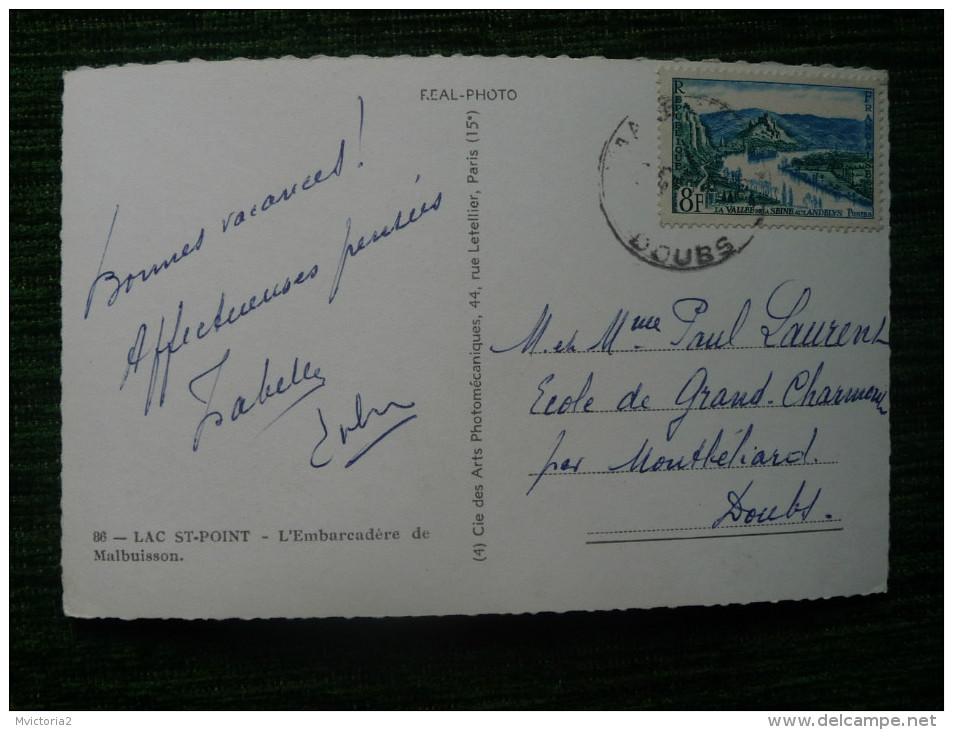 REAL-PHOTO
Bonnes vacances!
Affectueuses pensées
Isabelle
86 — LAC ST-POINT - L'Embarcadère de
Malbuisson.
(4) Cie des Arts Photomécaniques, 44, rue Letellier, Paris (15e)
REPUBLIQUE FRANCAISE
8F
LA VALLEE DE LA SEINE AUX ANDELYS POSTES
DOUBS
M. et Mme Paul Laurent
Ecole de Grand-Charmont
par Montbéliard.
Doubs.
Mvictoria2
www.delcampe.net